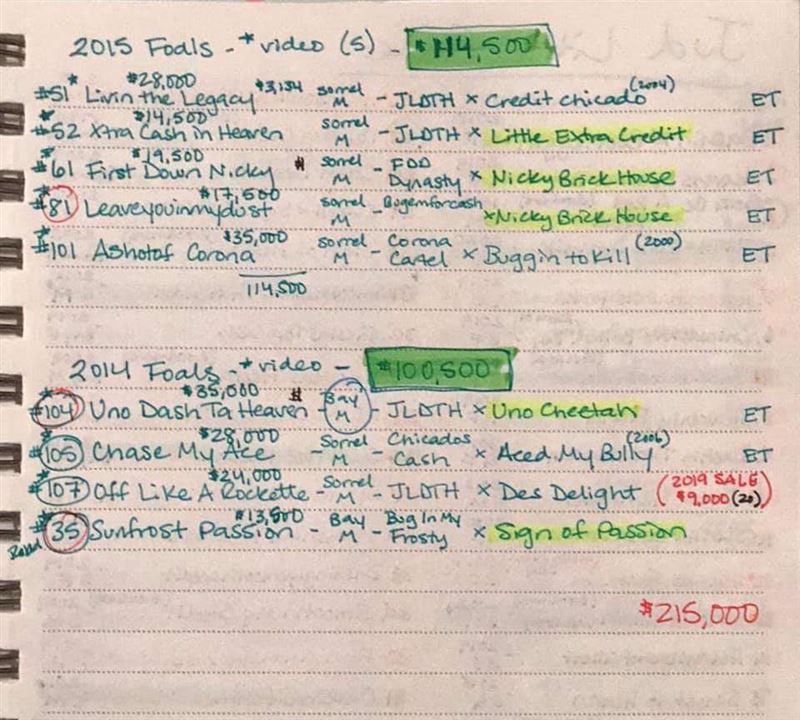 2015 Foals - *video (5) - $114,500
* $28,000 $3,154 (2004)
#51 Livin the Legacy sorrel M - JLDTH x Credit chicado ET
* $14,500
#52 Xtra Cash in Heaven sorrel M - JLDTH x Little Extra Credit ET
* $19,500
#61 First Down Nicky # sorrel M - FDD Dynasty x Nicky Brick House ET
* $17,500
#81 Leaveyouinmydust sorrel M - Bugemforcash x Nicky Brick House ET
* $35,000 (2000)
#101 Ashotof Corona sorrel M - Corona Cartel x Buggin to Kill ET
114,500
2014 Foals - *video - $100,500
* $35,000 #
#104 Uno Dash Ta Heaven - Bay M - JLDTH x Uno Cheetah ET
* $28,000 (2006)
#105 Chase My Ace - Sorrel M - Chicados Cash x Aced My Bully ET
* $24,000
#107 Off Like A Rockette - Sorrel M - JLDTH x Des Delight (2019 SALE $9,000 (20))
* $13,500
#35 Sunfrost Passion - Bay M - Bug In My Frosty x Sign of Passion
$215,000